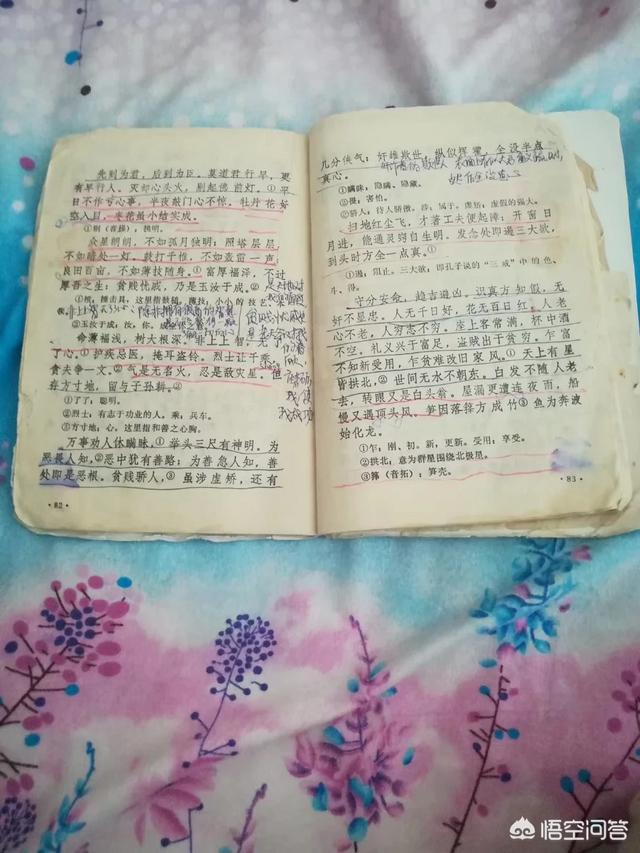 先到为君，后到为臣。莫道君行早，更
有早行人。灭却心头火，剔起佛前灯。①平
日不作亏心事，半夜敲门心不惊。牡丹花好
空入目，枣花虽小结实成。
①剔（音梯）：挑明。
众星朗朗，不如孤月独明；照塔层层，
不如暗处一灯。鼓打千椎，不如雷留一声，
良田百亩，不如薄技随身。①富厚福泽，不过
厚吾之生；贫贱忧戚，乃是玉汝于成。②
①椎，捶击具，这里指敲。薄技：小小的技艺。
②玉汝于成：汝，你。成
命薄福浅，树大根深。非上上智，无了
了心。①护疾忌医，掩耳盗铃。烈士让千乘，
贪夫争一文。②气是无名火，忍是敌灾星。但
存方寸地，留与子孙耕。③
①了了：聪明。
②烈士：有志于功业的人。乘，兵车。
③方寸地：心。这里指和善之心胸。
万事劝人休瞒昧，①举头三尺有神明。为
恶畏人知，②恶中犹有善路；为善急人知，善
处即是恶根。贫贱骄人，③虽涉虚矫，还有
·82·
几分侠气；奸雄欺世，纵似挥霍，全没半点
真心。
①瞒昧，隐瞒，隐藏。
②畏：害怕。
③骄人，待人骄傲。涉：属于。虚矫：虚假的强大。
扫地红尘飞，才著工夫便起障；开窗日
月进，能通灵窍自生明。发念处即遏三大欲，
到头时方全一点真。①
①遏：阻止。三大欲：即孔子说的“三戒”中的色、
斗、得。
守分安命，趋吉避凶。识真方知假，无
奸不显忠。人无千日好，花无百日红。人老
心不老，人穷志不穷。座上客常满，杯中酒
不空。礼义兴于富足，盗贼出于贫穷。乍富
不知新受用，乍贫难改旧家风。①天上有星
皆拱北，②世间无水不朝东。白发不随人老
去，转眼又是白头翁。屋漏更遭连夜雨，船
慢又遇顶头风。笋因落箨方成竹③鱼为奔波
始化龙。
①乍：刚、初。新，更新。受用：享受。
②拱北：意为群星围绕北极星。
③箨（音拓）：笋壳。
·83·
悟空问答